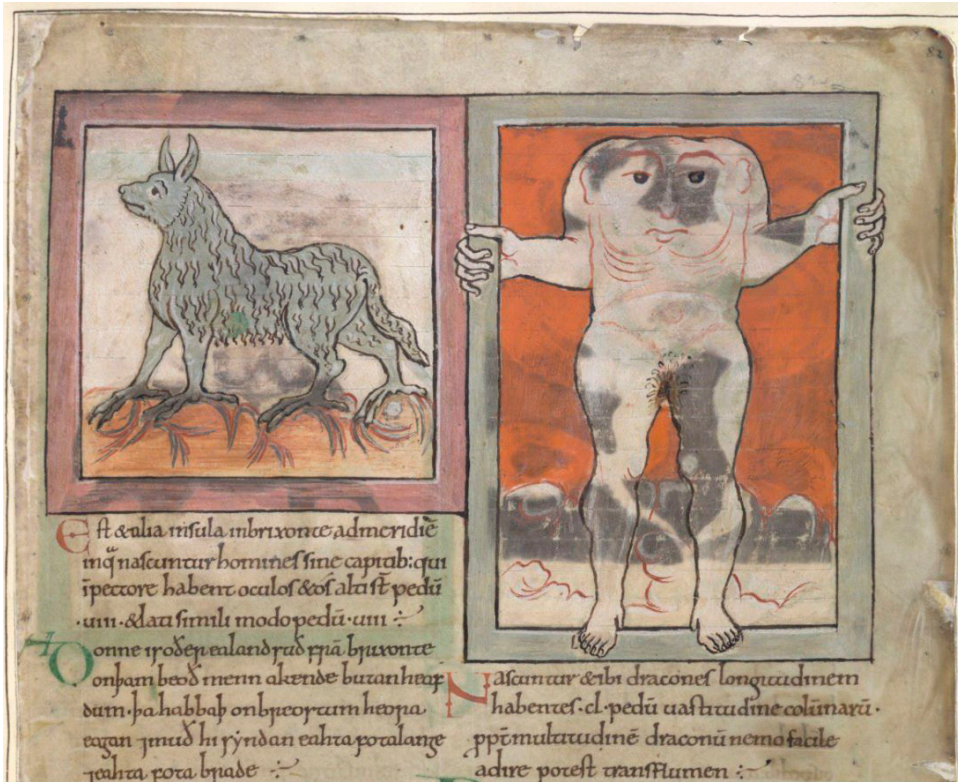 82
Est & alia insula inbrixonte admeridiē
inq̄ nascuntur homines sine capitib: qui
īpectore habent oculos & os alti st̄ pedū
.uiii. & lati simili modo pedū .uiii :~
Ðonne is oðer ealand suð frā brixonte
onþam beoð menn akende butan heaf
dum. þa habbaþ on breostum heora
eagan ⁊ muð hi syndan eahta fota lange
⁊ eahta fota brade :~
Nascuntur & ibi dracones longitudinem
habentes .cl. pedū uastitudine colūnarū.
ꝓpt̄ multitudinē draconū nemo facile
adire potest transflumen :~